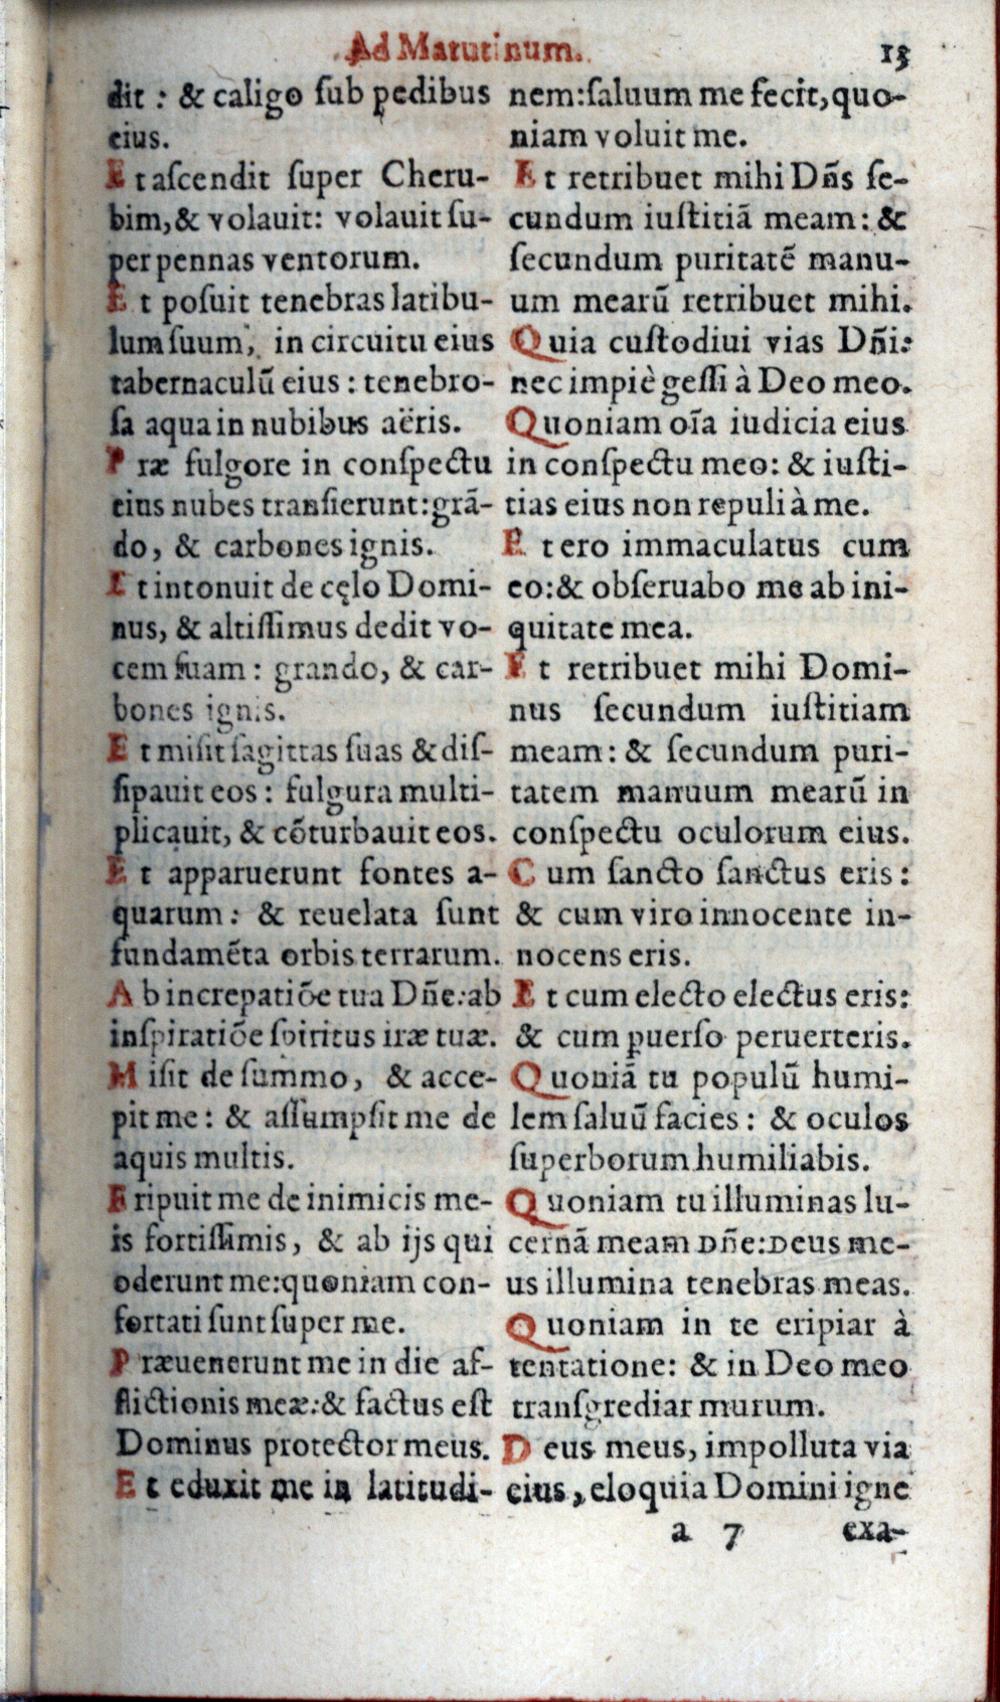 Ad Matutinum.
13
dit : & caligo ſub pedibus
eius.
Et aſcendit ſuper Cheru-
bim, & volauit: volauit ſu-
per pennas ventorum.
Et poſuit tenebras latibu-
lum ſuum, in circuitu eius
tabernaculũ eius : tenebro-
ſa aqua in nubibus aëris.
Præ fulgore in conſpectu
eius nubes tranſierunt: grã-
do, & carbones ignis.
Et intonuit de cęlo Domi-
nus, & altiſſimus dedit vo-
cem ſuam : grando, & car-
bones ignis.
Et miſit ſagittas ſuas & diſ-
ſipauit eos : fulgura multi-
plicauit, & cõturbauit eos.
Et apparuerunt fontes a-
quarum : & reuelata ſunt
fundamẽta orbis terrarum.
Ab increpatiõe tua Dñe: ab
inſpiratiõe ſpiritus iræ tuæ.
Miſit de ſummo, & acce-
pit me : & aſſumpſit me de
aquis multis.
Eripuit me de inimicis me-
is fortiſſimis, & ab ijs qui
oderunt me: quoniam con-
fortati ſunt ſuper me.
Præuenerunt me in die af-
flictionis meæ: & factus eſt
Dominus protector meus.
Et eduxit me in latitudi-
nem: ſaluum me fecit, quo-
niam voluit me.
Et retribuet mihi Dñs ſe-
cundum iuſtitiã meam : &
ſecundum puritatẽ manu-
um mearũ retribuet mihi.
Quia cuſtodiui vias Dñi:
nec impiè geſſi à Deo meo.
Quoniam oĩa iudicia eius
in conſpectu meo: & iuſti-
tias eius non repuli à me.
Et ero immaculatus cum
eo: & obſeruabo me ab ini-
quitate mea.
Et retribuet mihi Domi-
nus ſecundum iuſtitiam
meam : & ſecundum puri-
tatem manuum mearũ in
conſpectu oculorum eius.
Cum ſancto ſanctus eris :
& cum viro innocente in-
nocens eris.
Et cum electo electus eris:
& cum puerſo peruerteris.
Quoniã tu populũ humi-
lem ſaluũ facies : & oculos
ſuperborum humiliabis.
Quoniam tu illuminas lu-
cernã meam Dñe: Deus me-
us illumina tenebras meas.
Quoniam in te eripiar à
tentatione: & in Deo meo
tranſgrediar murum.
Deus meus, impolluta via
eius, eloquia Domini igne
a 7
exa-